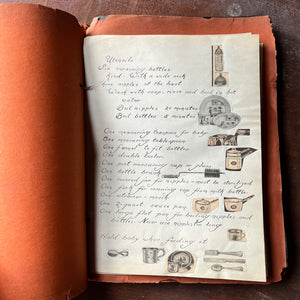 Utensils
Six nursing bottles
Kind: With a wide neck
nipples at the least.
Wash with soap, rinse and boil in hot
water
Boil nipples 20 minutes
Boil bottles - 5 minutes
One measuring teaspoon for baby
One measuring tablespoon
One funnel to fit bottles
One double boiler
One pint measuring cup or glass
One bottle brush
One covered jar for nipples - must be sterilized
for removing cap from milk bottles
One 2-quart sauce pan
One large flat pan for boiling nipples and
bottles. Never use nipples too long
Hold baby when feeding it